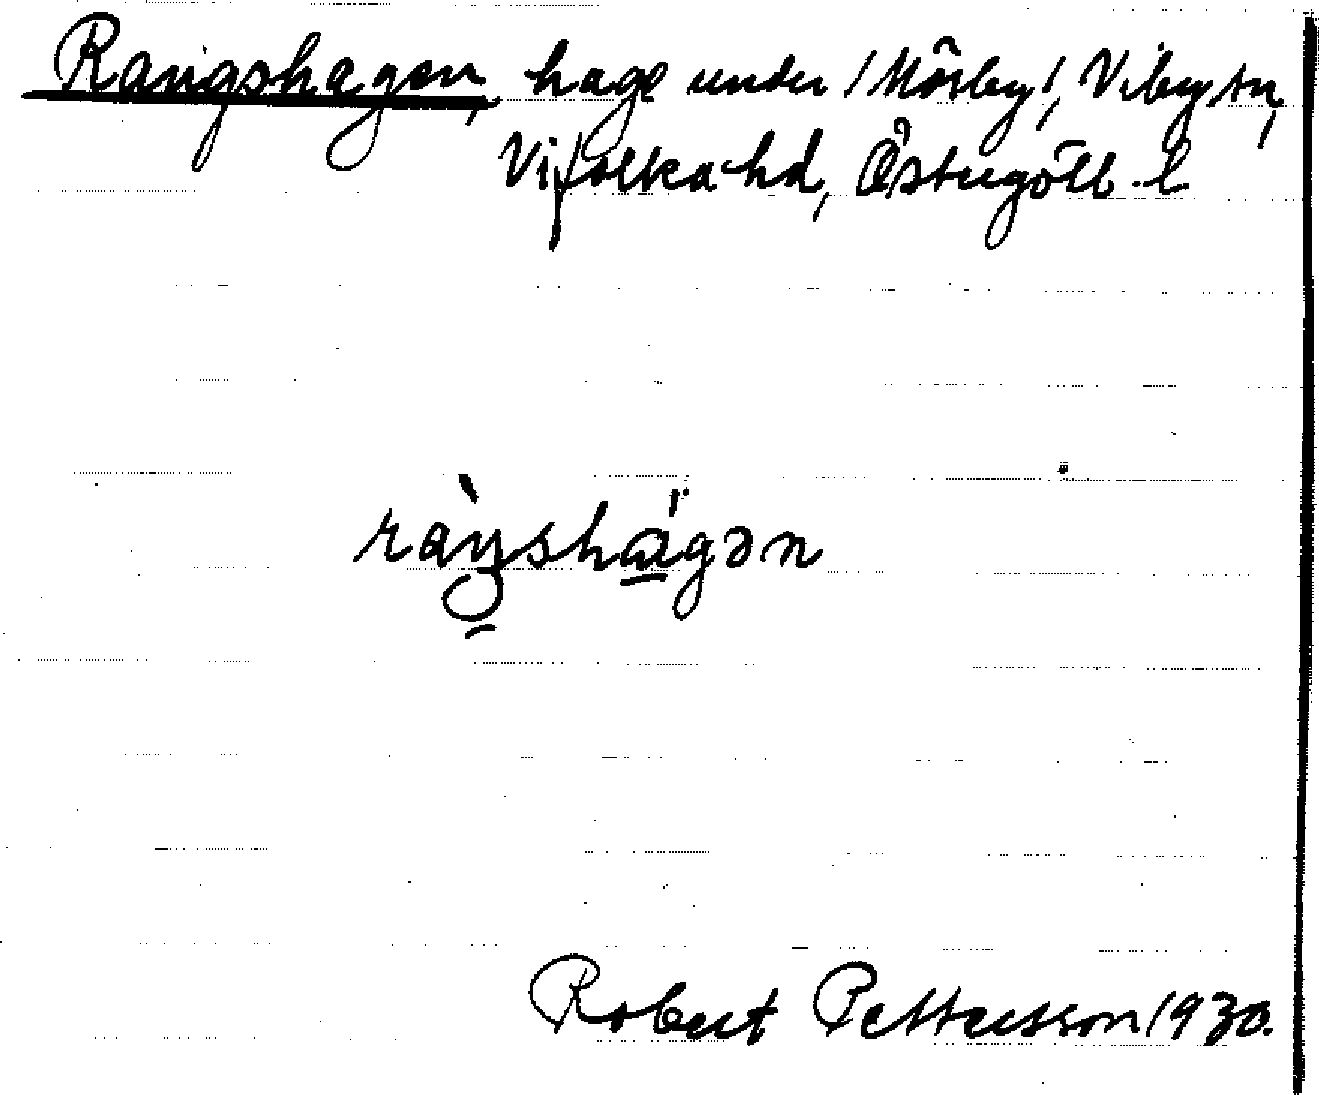 Rangshagen, hage under /Mörby/, Viby sn,
Vifolka hd, Östergötl. l
ràŋshágən
Robert Pettersson 1930.